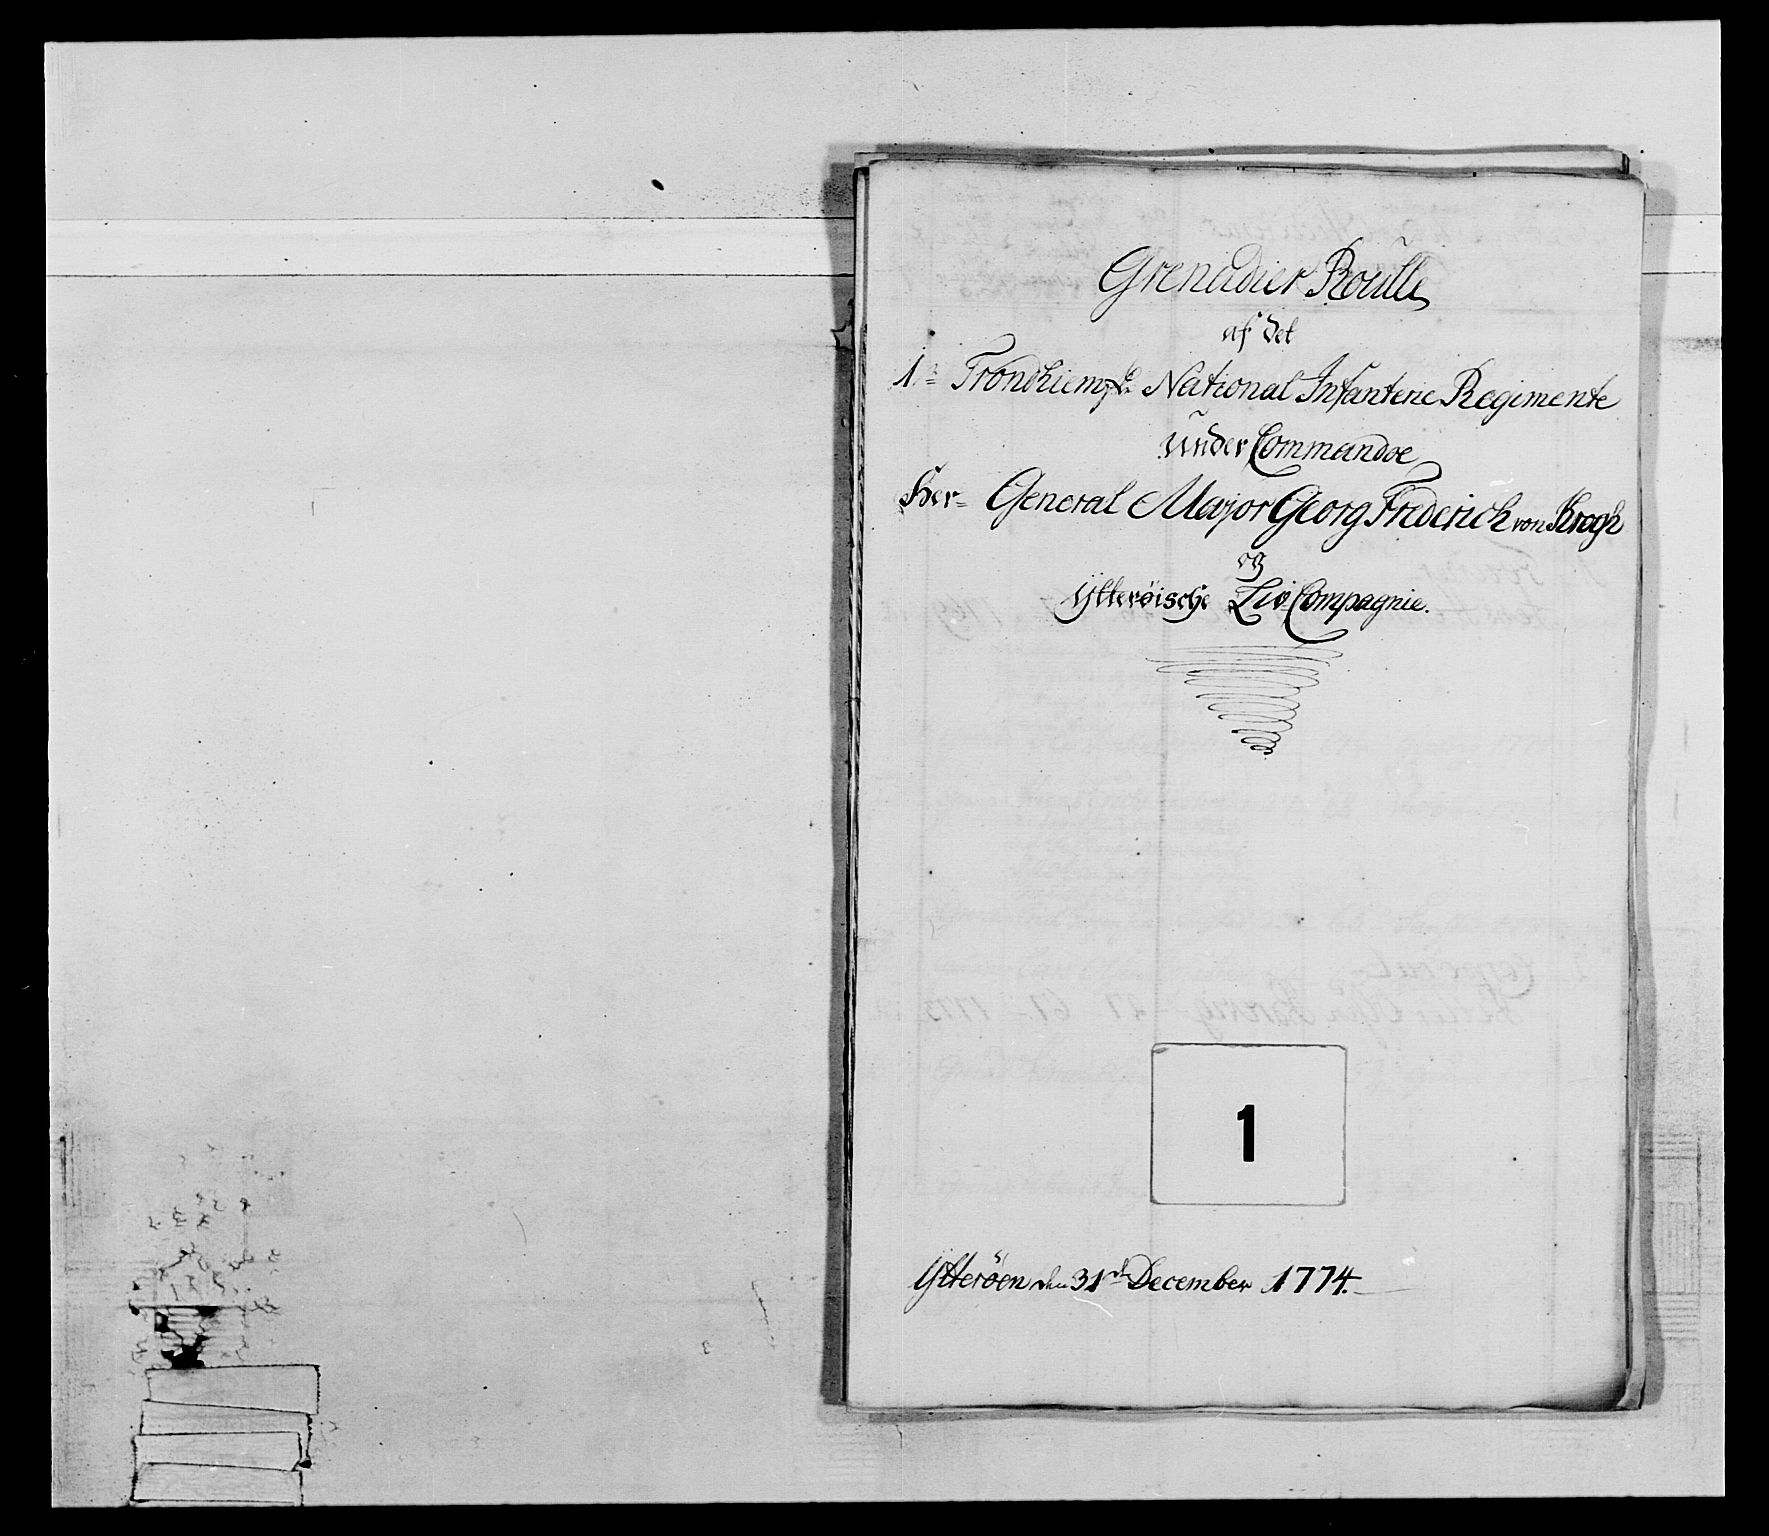 Grenadier Roulle
af det
1te Trondhiemske National Infanterie Regimente
under Commandoe
Her= General Major Georg Friderich von Krogh
og
Ytterøische Liv Compagnie.
1
Ytterøen den 31de December 1774.